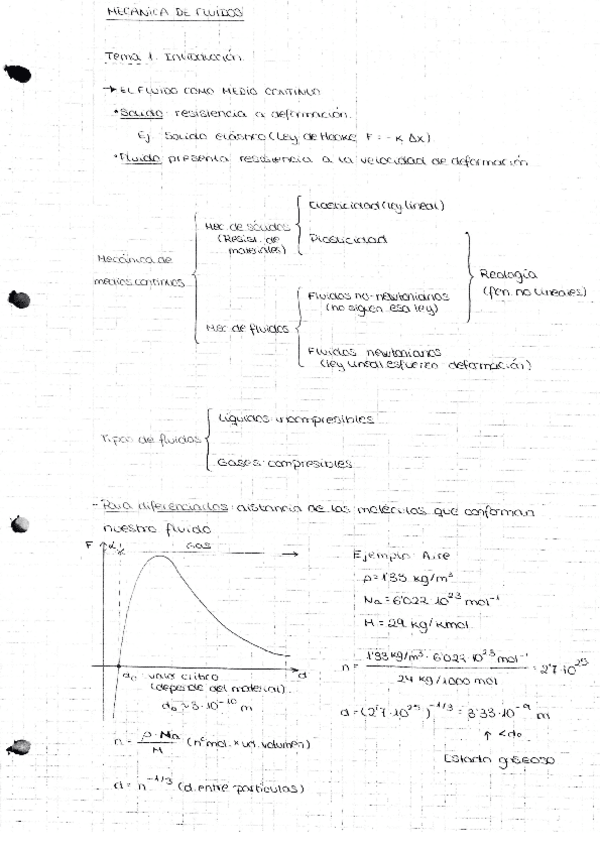 MECÁNICA DE FLUIDOS
Tema 1. Introducción
→ EL FLUIDO COMO MEDIO CONTINUO
• Sólido: resistencia a deformación.
Ej: Sólido elástico (Ley de Hooke F = - K Δx)
• Fluido: presenta resistencia a la velocidad de deformación
Mecánica de
medios continuos
Mec. de sólidos
(Resist. de
materiales)
Elasticidad (ley lineal)
Plasticidad
Mec de fluidos
Fluidos no-newtonianos
(no siguen esa ley)
Fluidos newtonianos
(ley lineal esfuerzo deformación)
Reología
(fen. no lineales)
Tipos de fluidos
Líquidos: incompresibles
Gases: compresibles
- Para diferenciarlos: distancia de las moléculas que conforman
nuestro fluido
F
GAS
d
d₀: valor crítico
(depende del material).
d₀ ≈ 3·10⁻¹⁰ m
n = ρ·Na / M (nº mol. × ud. volumen)
d = n^(-1/3) (d. entre partículas)
Ejemplo: Aire
ρ = 1'33 kg/m³
Na = 6'022·10²³ mol⁻¹
M = 29 kg/kmol
n = 1'33 kg/m³ · 6'022·10²³ mol⁻¹ / 29 kg/1000 mol = 2'7·10²⁵
d = (2'7·10²⁵)^(-1/3) = 3'33·10⁻⁹ m
↑ < d₀
Estado gaseoso